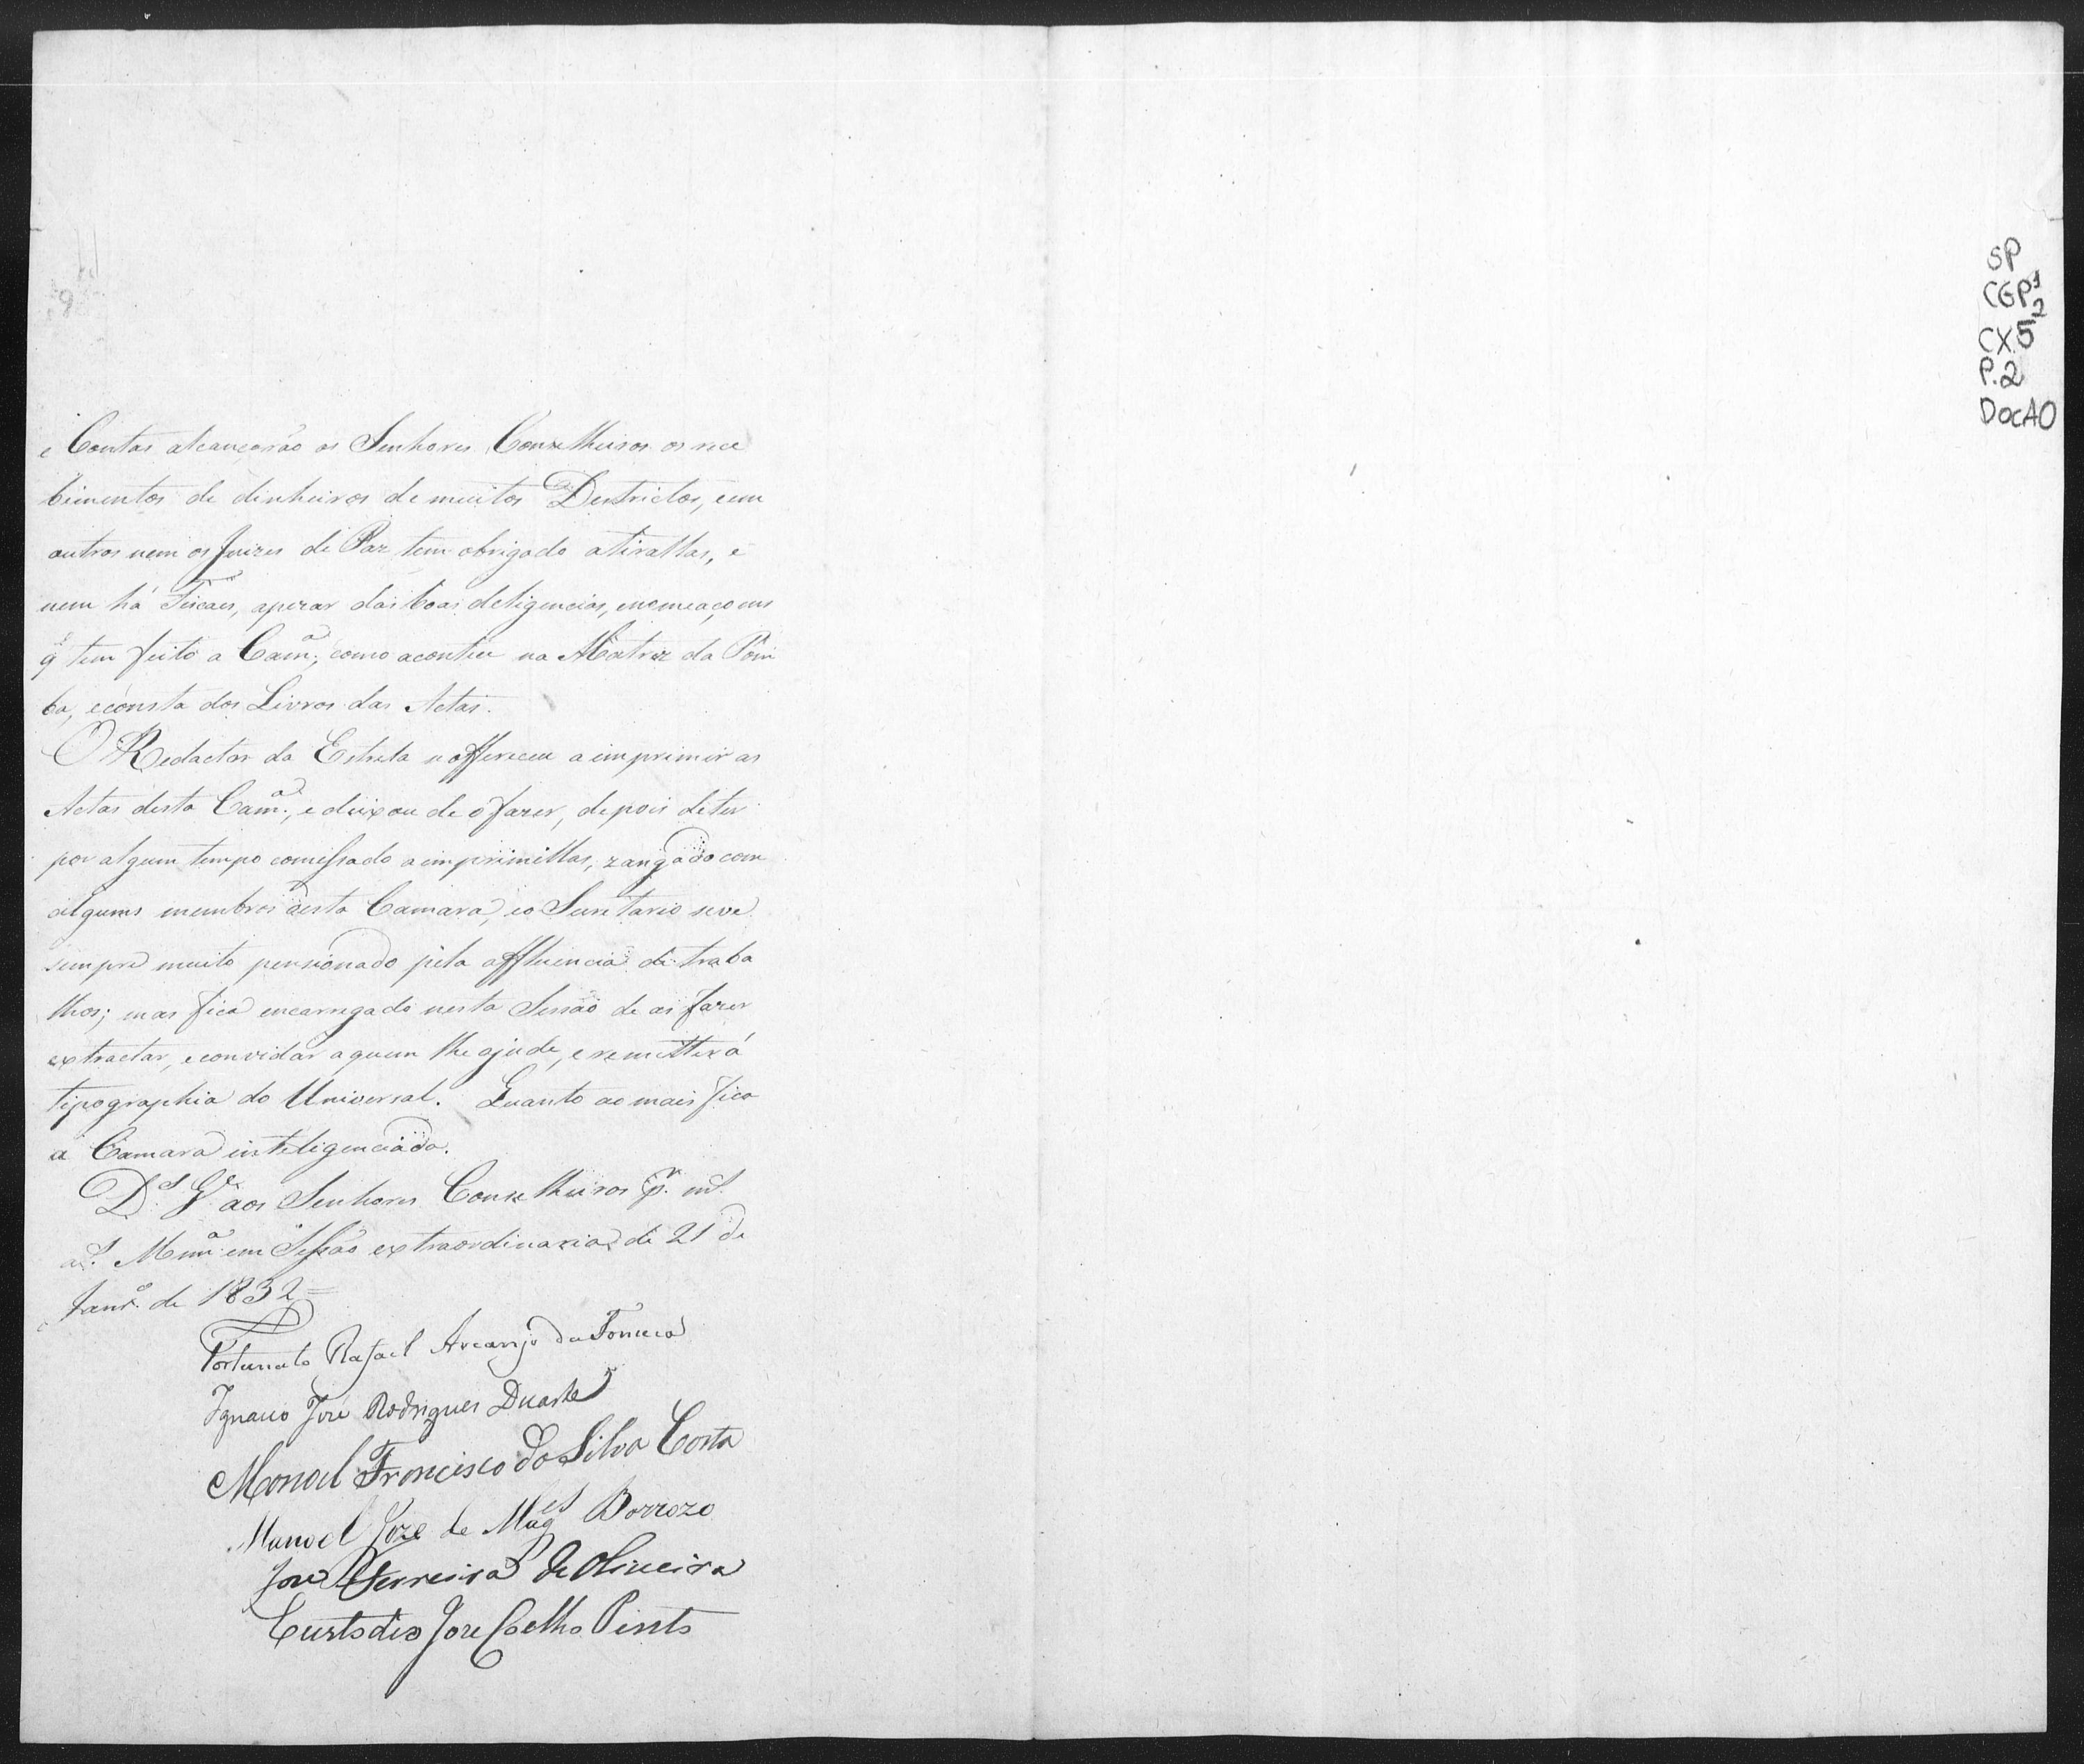 e Contas alcançarão os Senhores Conselheiros os rece
bimentos de dinheiros de muitos Destrictos, eem
outros nem os Juizes de Paz tem obrigado atirallas, e
nem há Fiscaes, apezar das boas deligencias, enomeaçoens
q̃ tem feito a Camª., como aconteceo na Matriz da Pom
ba, econsta dos Livros das Actas.
O Redactor da Estrela se offereceu a imprimir as
Actas desta Camª., e deixou de o fazer, depois de ter
por algum tempo comessado a imprimillas, zangado com
alguns membros desta Camara, eo Secretario se vê
sempre muito pensionado pela affluencia de traba
lhos; mas fica encarregado nesta Sessão de as fazer
extractar, econvidar aquem lhe ajude, e remetter á
tipographia do Universal. Quanto ao mais fica
a Camara inteligenciada.
Dˢ. Gᵉ. aos Senhores Conselheiros pʳ. mˢ.
aˢ. Mnnª em Sessão extraordinaria de 21 de
Janrº. de 1832=
Fortunato Rafael Arcanjo da Fonseca
Ignacio José Rodrigues Duarte
Manoel Francisco da Silva Costa
Manoel Joze de Magˡᵉˢ Borrozo
Jose Ferreira de Oliveira
Custodio Jose Coelho Pinto
SP
CGP¹
2
CX.5
P.2
Doc40